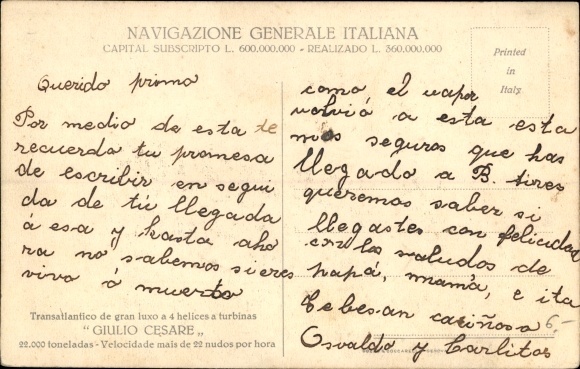 NAVIGAZIONE GENERALE ITALIANA
CAPITAL SUBSCRIPTO L. 600.000.000 - REALIZADO L. 360.000.000
Printed
in
Italy
Querido primo
Por medio de esta te
recuerdo tu promesa
de escribir en segui
da de tú llegada
á esa y hasta aho
ra no sabemos si eres
vivo ó muerto
como el vapor
volvió a esta esta
mos seguros que has
llegado a B. Aires
queremos saber si
llegastes con felicidad
con los saludos de
papá, mamá, e ita
te besan cariñosa
Osvaldo y Carlitos
6,-
Transatlantico de gran luxo a 4 helices a turbinas
“ GIULIO CESARE „
22.000 toneladas - Velocidade mais de 22 nudos por hora